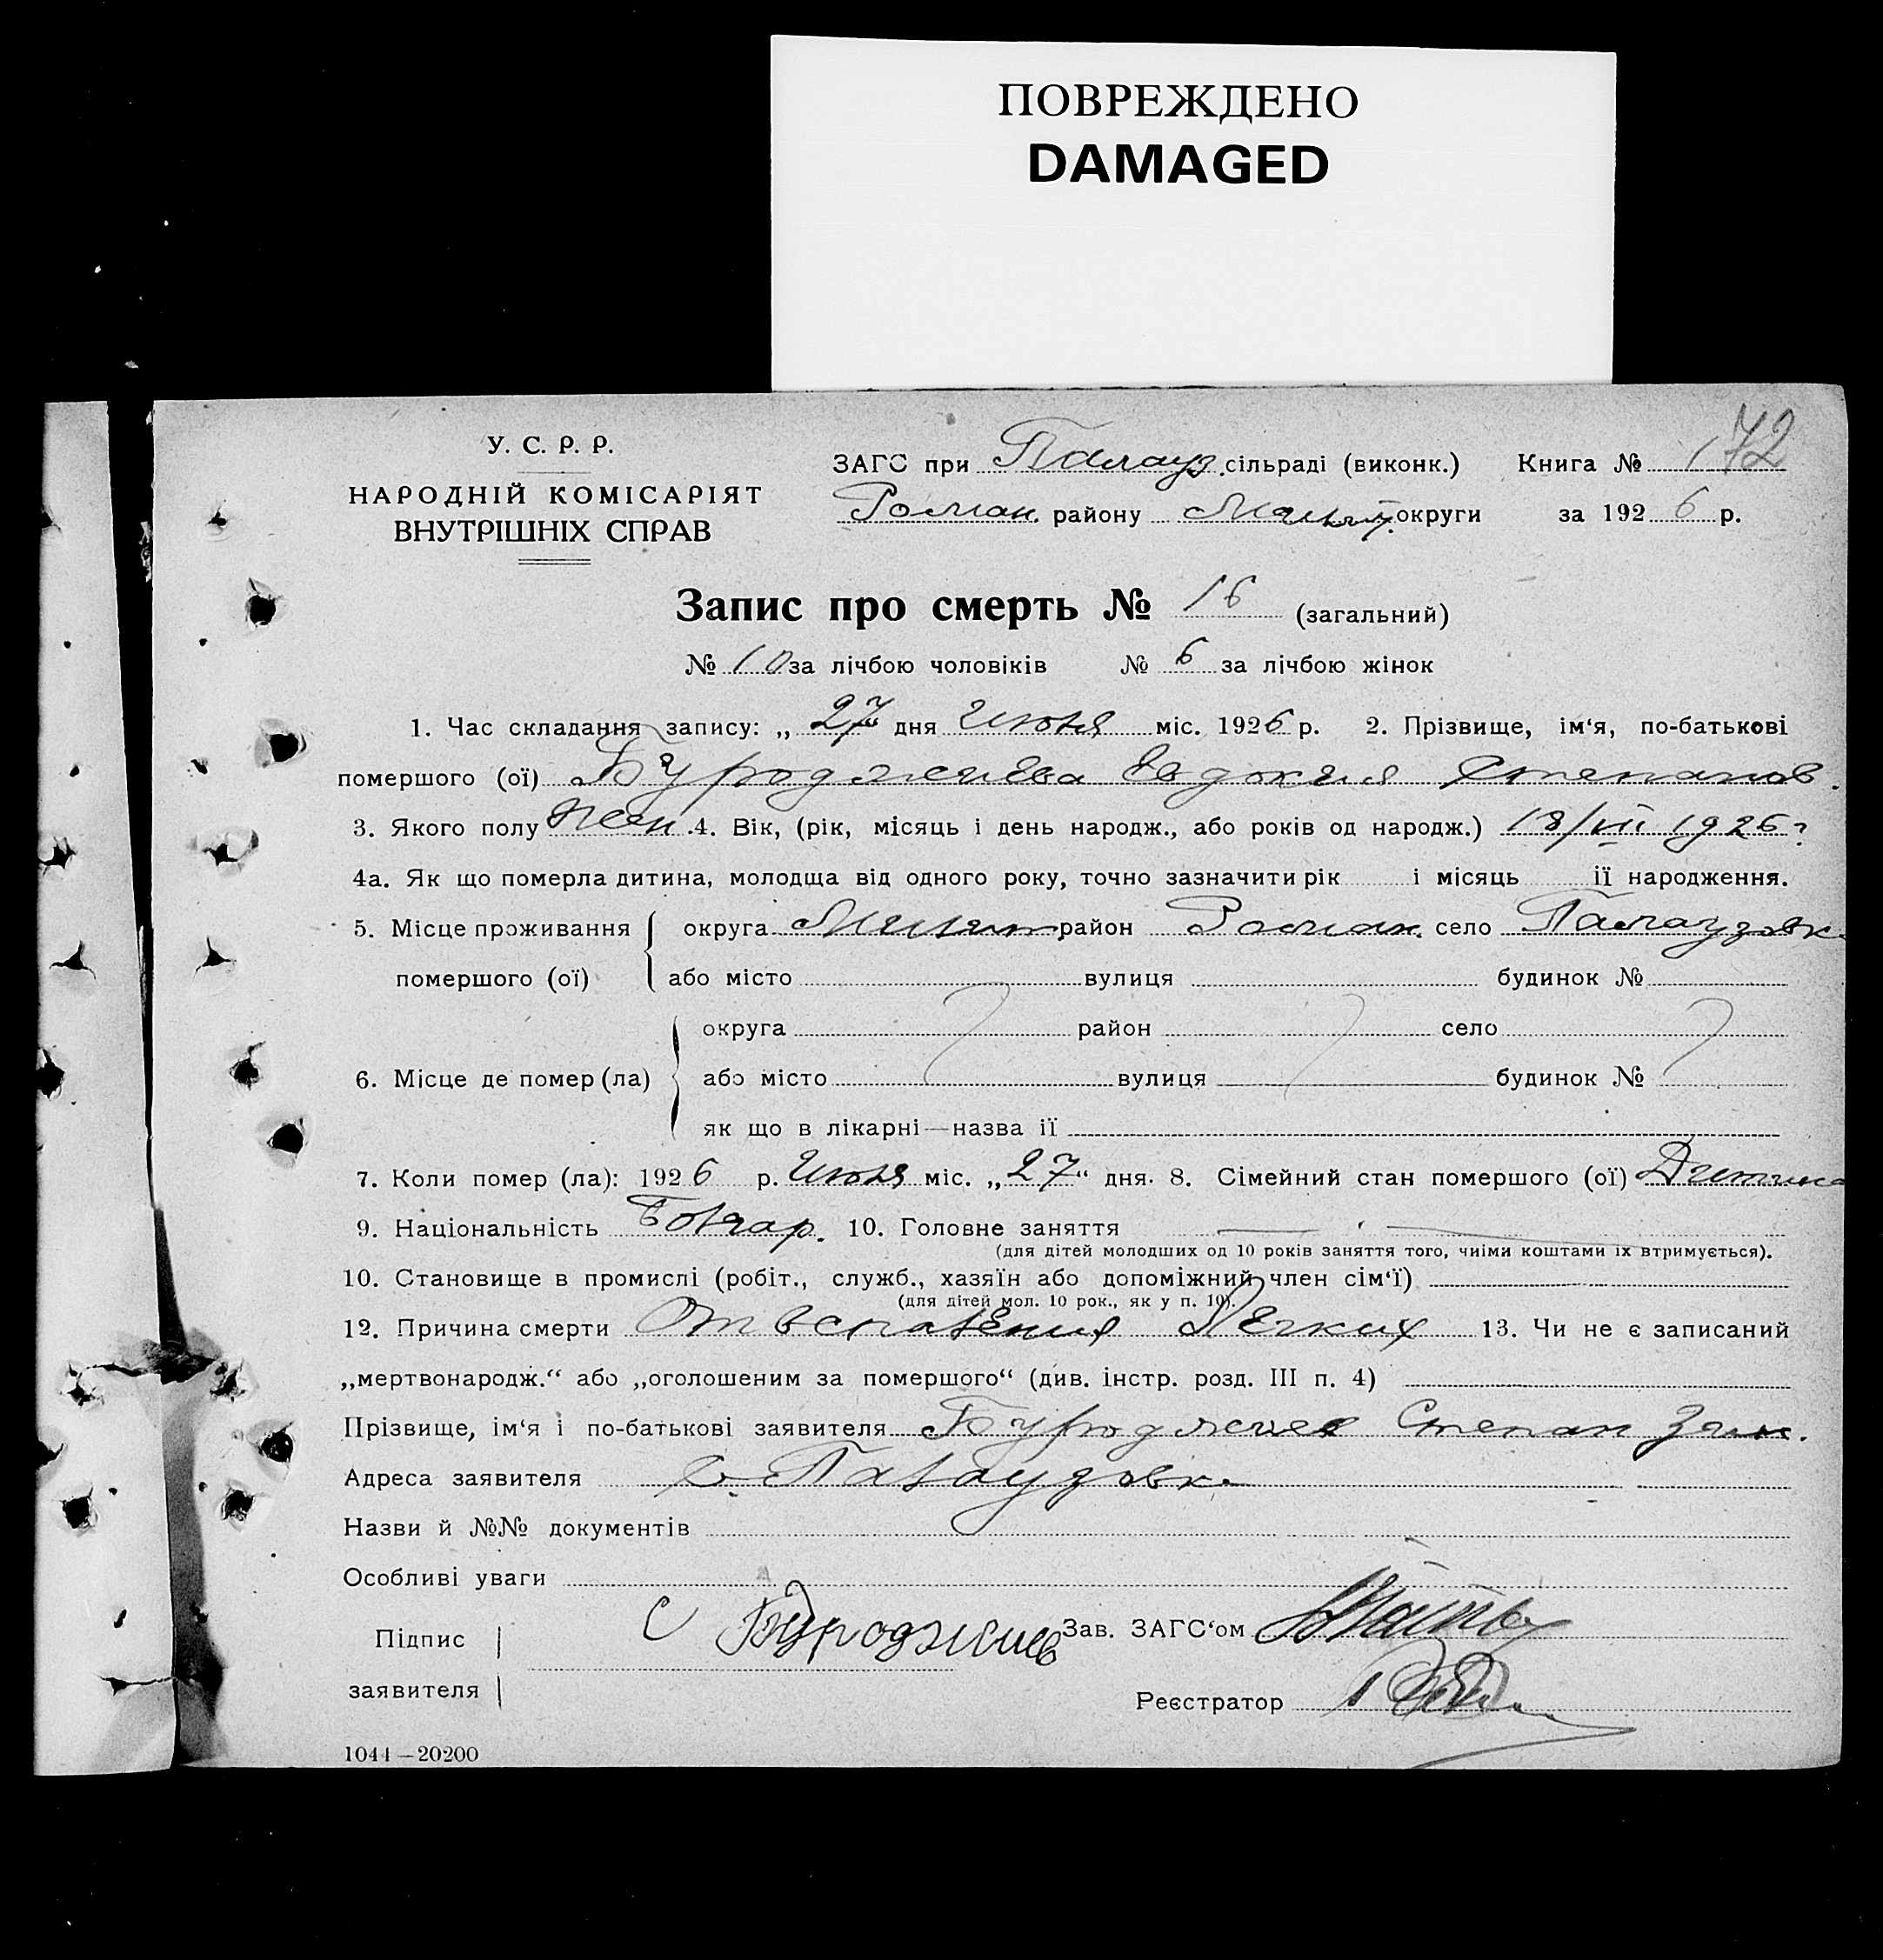 ПОВРЕЖДЕНО
DAMAGED
72
У. С. Р. Р.
НАРОДНІЙ КОМІСАРІЯТ
ВНУТРІШНІХ СПРАВ
ЗАГС при Палауз. сільраді (виконк.) Книга № 1
Роман. району округи за 1926 р.
Запис про смерть № 16 (загальний)
№ 10 за лічбою чоловіків № 6 за лічбою жінок
1. Час складання запису: „ 27 “ дня Июля міс. 1926 р. 2. Прізвище, ім‘я, по-батькові
помершого (ої) Буроджиева Евдокия Степанов.
3. Якого полу жен. 4. Вік, (рік, місяць і день народж., або років од народж.) 18/VII 1926 г
4а. Як що померла дитина, молодща від одного року, точно зазначити рік і місяць її народження.
5. Місце проживання округа Мелит район Роман. село Палаузовк
помершого (ої) або місто вулиця будинок №
округа район село
6. Місце де помер (ла) або місто вулиця будинок №
як що в лікарні—назва її
7. Коли помер (ла): 1926 р. Июля міс. „ 27 “ дня. 8. Сімейний стан помершого (ої) Дитина
9. Національність Болгар. 10. Головне заняття
(для дітей молодших од 10 років заняття того, чиїми коштами їх втримується).
10. Становище в промислі (робіт., служб., хазяїн або допоміжний член сім‘ї)
(для дітей мол. 10 рок., як у п. 10).
12. Причина смерти От воспаления Легких 13. Чи не є записаний
„мертвонародж.“ або „оголошеним за помершого“ (див. інстр. розд. III п. 4)
Прізвище, ім‘я і по-батькові заявителя Буроджиев Степан
Адреса заявителя с. Палаузовка
Назви й №№ документів
Особливі уваги
Підпис
заявителя
С Буроджиев
Зав. ЗАГС‘ом
Реєстратор
1044—20200